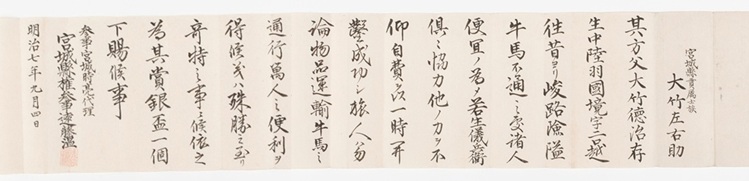 宮城縣貫属士族
大竹左右助
其方父大竹德治存
生中陸羽國境字二口越
往昔ヨリ峻路險隘
牛馬不通之処諸人
便宜ノ為メ若生儀兵衛
俱ニ協力他ノ力ヲ不
仰自費ヲ以一時開
鑿成功シ旅人勿
論物品運輸牛馬之
通行萬人之便利ヲ
得候義ハ殊勝之至リ
奇特之事ニ候依之
為其賞銀盃一個
下賜候事
参事宮城時亮代理
宮城縣権参事遠藤温
明治七年九月四日